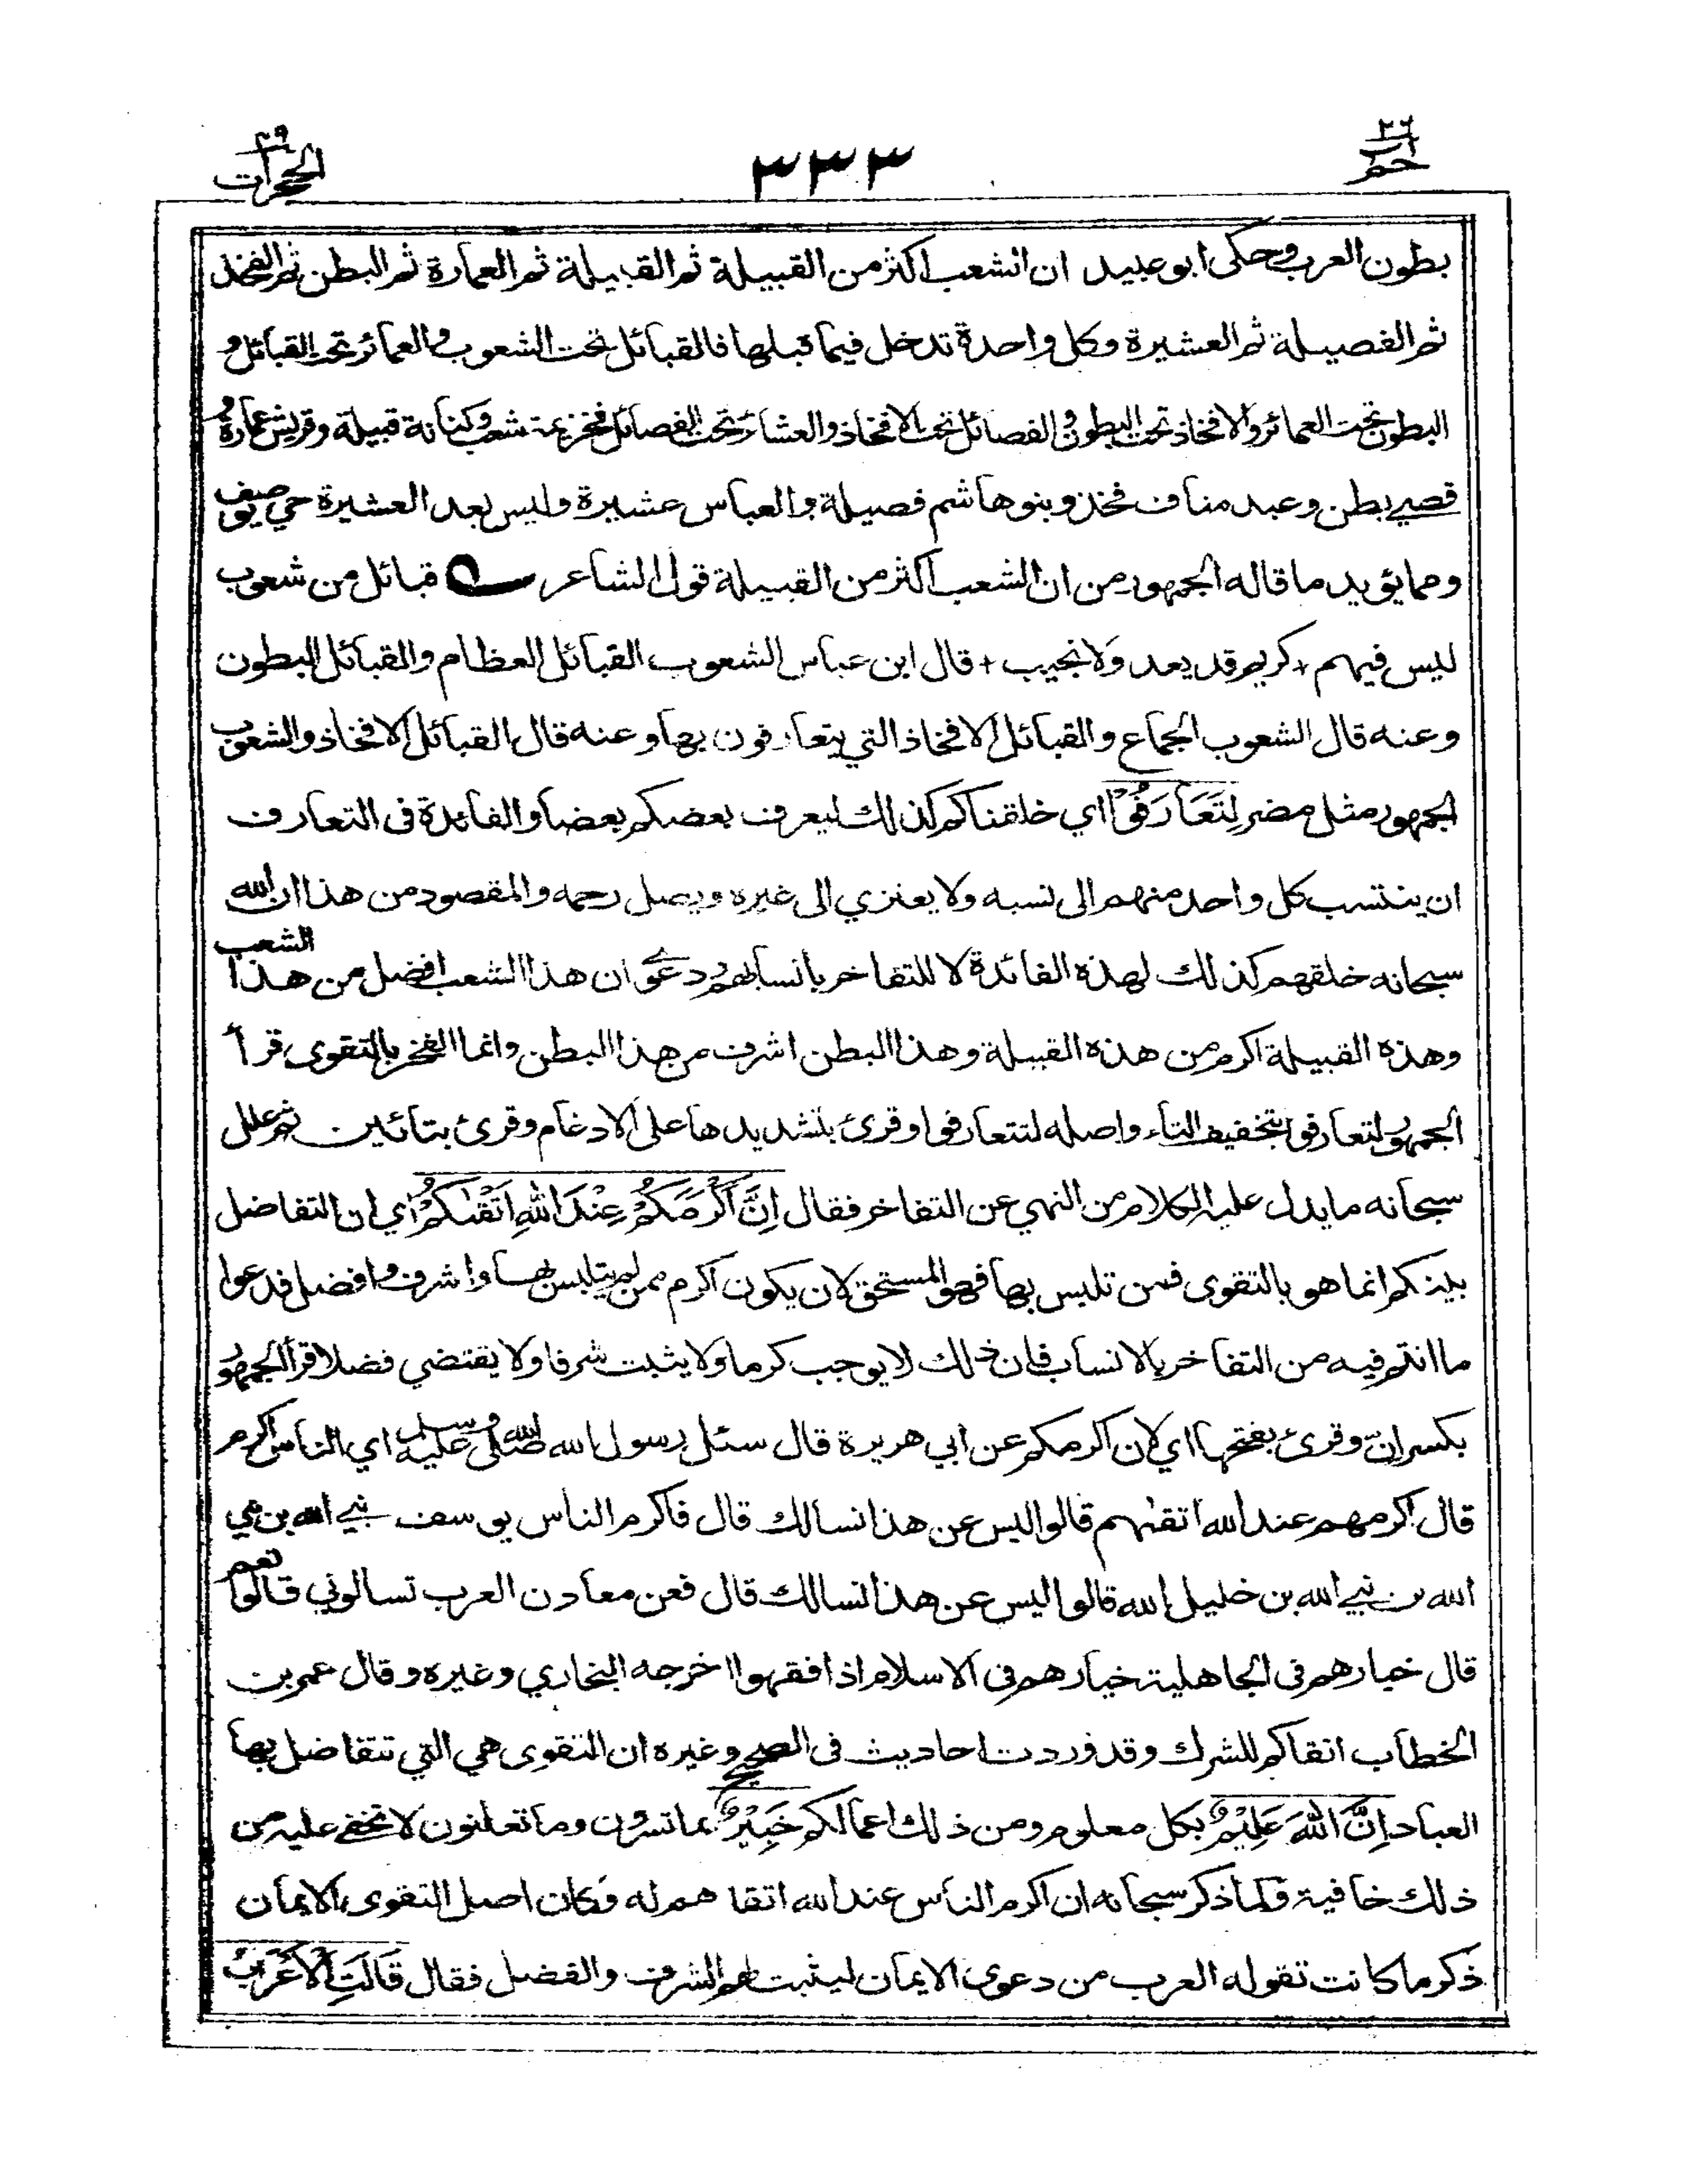 حم ٢٦
٣٣٣
الحجرات ٤٩
بطون العرب وحكى ابو عبيد ان الشعب اكثر من القبيلة ثم القبيلة ثم العمارة ثم البطن ثم الفخذ
ثم الفصيلة ثم العشيرة وكل واحدة تدخل فيما قبلها فالقبائل تحت الشعوب والعمائر تحت القبائل و
البطون تحت العمائر والافخاذ تحت البطون والفصائل تحت الافخاذ والعشائر تحت الفصائل فخزيمة شعب وكنانة قبيلة وقريش عمارة و
قصي بطن وعبد مناف فخذ وبنو هاشم فصيلة والعباس عشيرة وليس بعد العشيرة حي يوصف
ومما يؤيد ما قاله الجمهور من ان الشعب اكثر من القبيلة قول الشاعر قبائل من شعوب
ليس فيهم + كريم قد يعد ولا نجيب + قال ابن عباس الشعوب القبائل العظام والقبائل البطون
وعنه قال الشعوب الجماع والقبائل الافخاذ التي يتعارفون بها وعنه قال القبائل الافخاذ والشعوب
الجمهور مثل مضر لِتَعَارَفُوْا اي خلقناكم كذلك ليعرف بعضكم بعضا والفائدة فى التعارف
ان ينتسب كل واحد منهم الى نسبه ولا يعتزي الى غيره ويصل رحمه والمقصود من هذا ان الله
سبحانه خلقهم كذلك لهذه الفائدة لا للتفاخر بانسابهم ودعوى ان هذا الشعب افضل من هذا الشعب
وهذه القبيلة اكرم من هذه القبيلة وهذا البطن اشرف من هذا البطن وانما الفخر بالتقوى قرأ
الجمهور لتعارفوا بتخفيف التاء واصله لتتعارفوا وقرئ بتشديدها على الادغام وقرئ بتائين ثم علل
سبحانه ما يدل عليه الكلام من النهي عن التفاخر فقال اِنَّ اَكْرَمَكُمْ عِنْدَ اللهِ اَتْقٰىكُمْ اي ان التفاضل
بينكم انما هو بالتقوى فمن تلبس بها فهو المستحق لان يكون اكرم ممن لم يتلبس بها واشرف وافضل فدعوا
ما انتم فيه من التفاخر بالانساب فان ذلك لا يوجب كرما ولا يثبت شرفا ولا يقتضي فضلا قرأ الجمهور
بكسر انّ وقرئ بفتحها اي لان اكرمكم عن ابي هريرة قال سئل رسول الله صلى الله عليه وسلم اي الناس اكرم
قال اكرمهم عند الله اتقٰىهم قالوا ليس عن هذا نسالك قال فاكرم الناس يوسف نبي الله بن نبي
الله بن نبي الله بن خليل الله قالوا ليس عن هذا نسالك قال فعن معادن العرب تسالوني قالوا نعم
قال خيارهم فى الجاهلية خيارهم فى الاسلام اذا فقهوا اخرجه البخاري وغيره وقال عمر بن
الخطاب اتقاكم للشرك وقد وردت احاديث فى الصحيح وغيره ان التقوى هي التي تتفاضل بها
العباد اِنَّ اللهَ عَلِيْمٌ بكل معلوم ومن ذلك اعمالكم خَبِيْرٌ بما تسرون وما تعلنون لا تخفى عليه من
ذلك خافية ولما ذكر سبحانه ان اكرم الناس عند الله اتقاهم له وكان اصل التقوى الايمان
ذكر ما كانت تقوله العرب من دعوى الايمان ليثبت لهم الشرف والفضل فقال قَالَتِ الْاَعْرَابُ